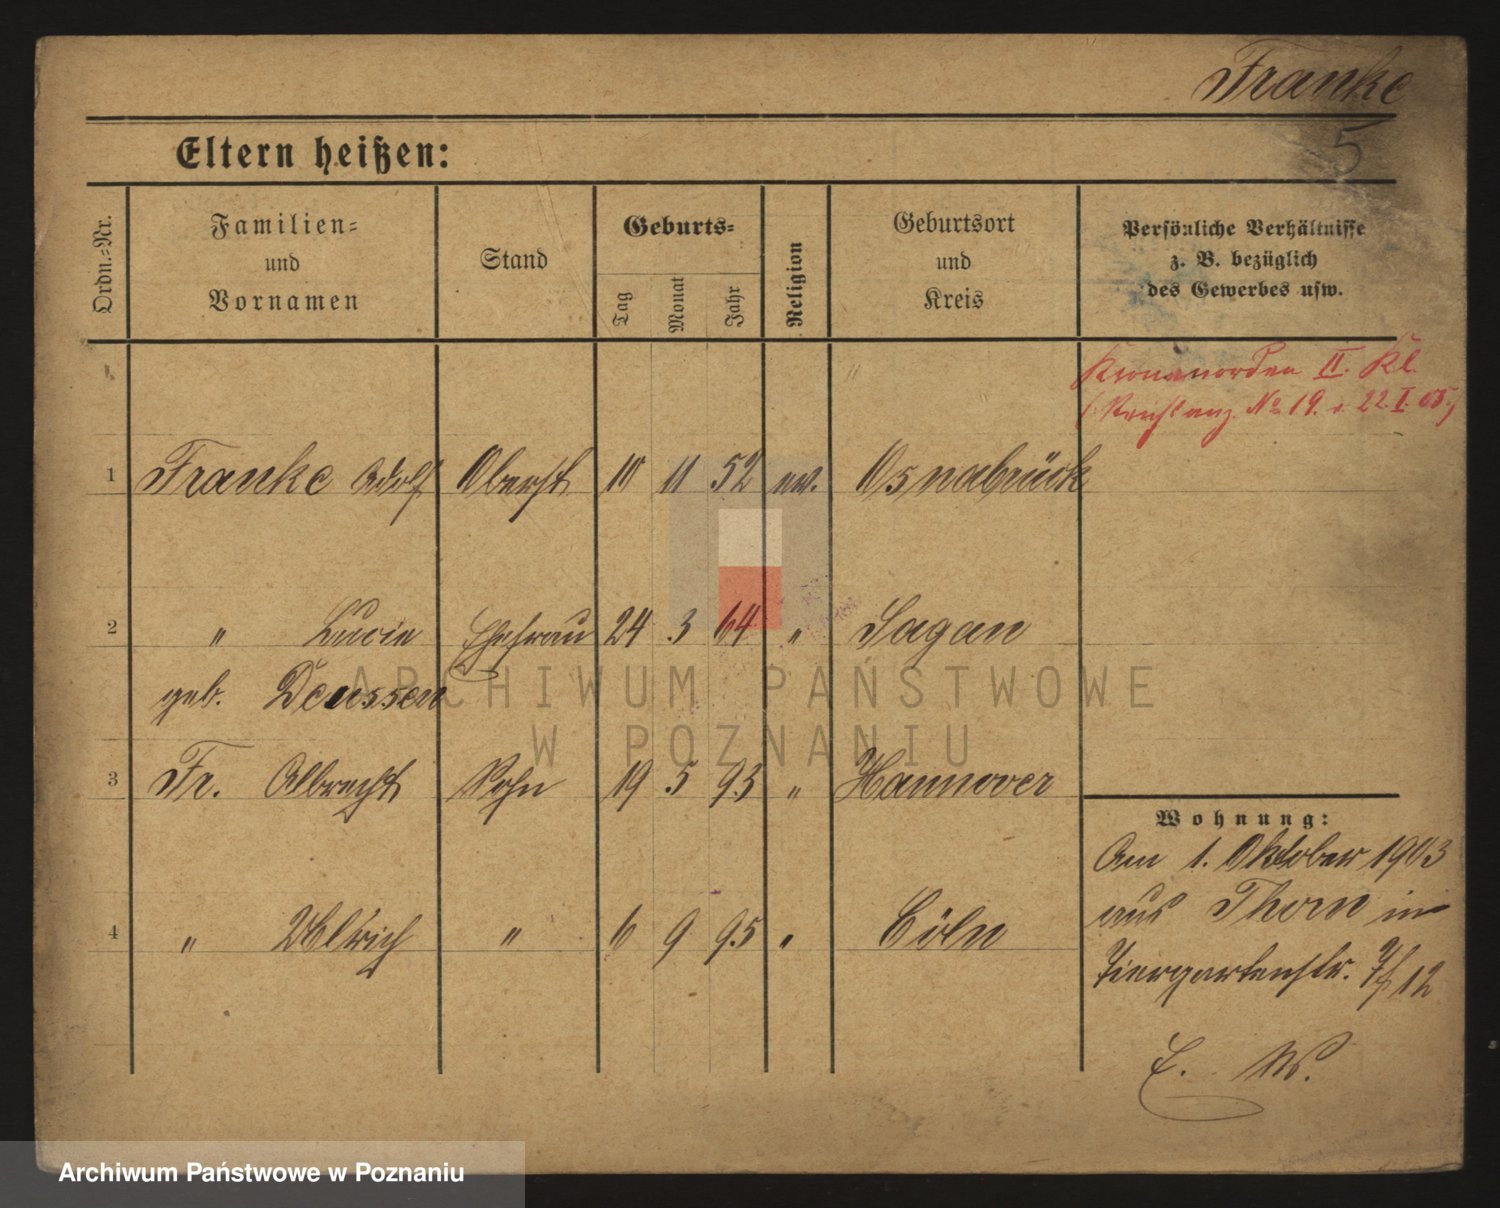 Franke
5
Eltern heißen:
Ordn.-Nr.
Familien-
und
Vornamen
Stand
Geburts-
Tag
Monat
Jahr
Religion
Geburtsort
und
Kreis
Persönliche Verhältnisse
z. B. bezüglich
des Gewerbes usw.
Kronenorden II. Kl.
No 19. v. 22. I. 05.)
1 Franke Adolf Oberst 10 11 52 ev. Osnabrück
2 " Lucie Ehefrau 24 3 64 " Sagan
geb. Deussen
ARCHIWUM PAŃSTWOWE
W POZNANIU
3 Fr. Albrecht Sohn 19 5 93 " Hannover
4 " Ulrich " 6 9 95 " Cöln
Wohnung:
Am 1. Oktober 1903
aus Thorn in
Tiergartenstr. 12
E. W.
Archiwum Państwowe w Poznaniu